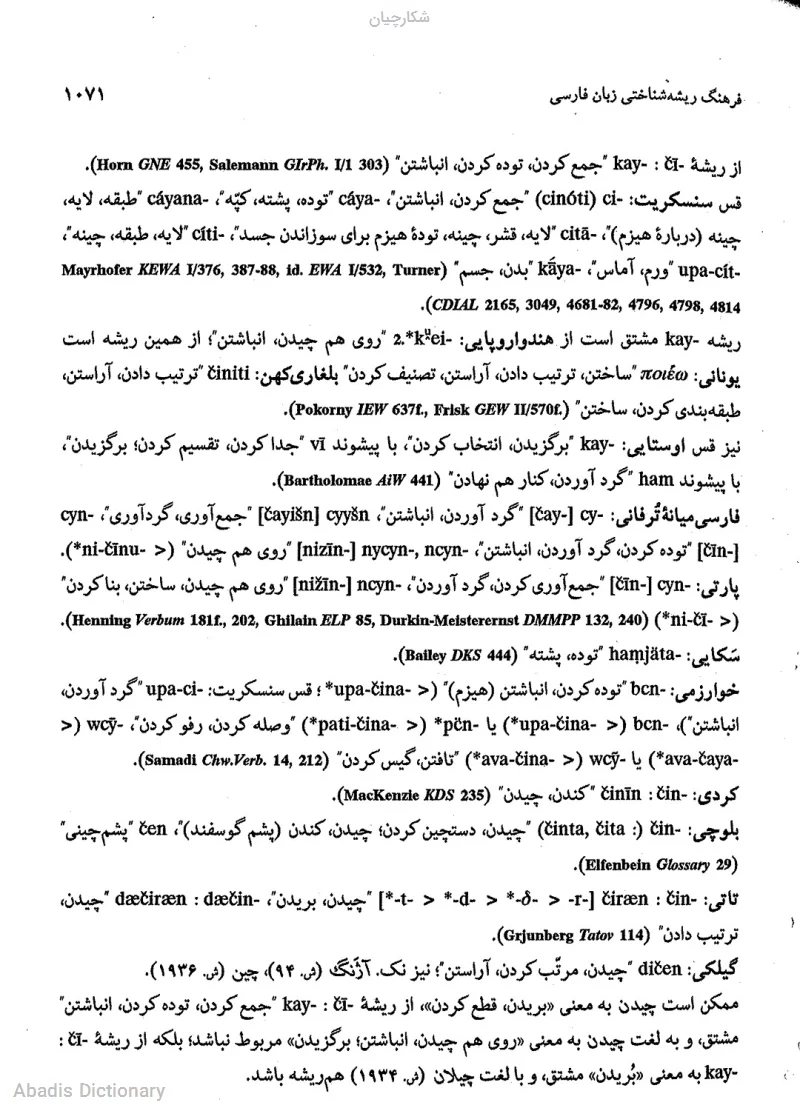 شکارچیان
فرهنگ ریشه‌شناختی زبان فارسی ۱۰۷۱
از ریشهٔ -kay- : čī "جمع کردن، توده کردن، انباشتن" (Horn GNE 455, Salemann GIrPh. I/1 303).
قس سنسکریت: -ci (cinóti) "جمع کردن، انباشتن"، -cáya "توده، پشته، کپّه"، -cáyana "طبقه، لایه،
چینه (دربارهٔ هیزم)"، -citā "لایه، قشر، چینه، تودهٔ هیزم برای سوزاندن جسد"، -cíti "لایه، طبقه، چینه"،
-upa-cít "ورم، آماس"، -kāya "بدن، جسم" (Mayrhofer KEWA I/376, 387-88, id. EWA I/532, Turner
CDIAL 2165, 3049, 4681-82, 4796, 4798, 4814).
ریشه -kay مشتق است از هندواروپایی: -2.*kᵘ̯ei "روی هم چیدن، انباشتن"؛ از همین ریشه است
یونانی: ποιέω "ساختن، ترتیب دادن، آراستن، تصنیف کردن" بلغاری‌کهن: činiti "ترتیب دادن، آراستن،
طبقه‌بندی کردن، ساختن" (Pokorny IEW 637f., Frisk GEW II/570f.).
نیز قس اوستایی: -kay "برگزیدن، انتخاب کردن"، با پیشوند vī "جدا کردن، تقسیم کردن؛ برگزیدن"،
با پیشوند ham "گرد آوردن، کنار هم نهادن" (Bartholomae AiW 441).
فارسی‌میانهٔ تُرفانی: -cy [čay-] "گرد آوردن، انباشتن"، cyyšn [čayišn] "جمع‌آوری، گردآوری"، -cyn
[čīn-] "توده کردن، گرد آوردن، انباشتن"، -nycyn-, ncyn [nizīn-] "روی هم چیدن" (< -ni-čīnu*).
پارتی: -cyn [čīn-] "جمع‌آوری کردن، گرد آوردن"، -ncyn [nižīn-] "روی هم چیدن، ساختن، بنا کردن"
(< -ni-čī*) (Henning Verbum 181f., 202, Ghilain ELP 85, Durkin-Meisterernst DMMPP 132, 240).
سَکایی: -haṃjäta "توده، پشته" (Bailey DKS 444).
خوارزمی: -bcn "توده کردن، انباشتن (هیزم)" (< -upa-čina* ؛ قس سنسکریت: -upa-ci "گرد آوردن،
انباشتن")، -bcn (< -upa-čina*) یا -pčn* (< -pati-čina*) "وصله کردن، رفو کردن"، -wcȳ (<
-ava-čaya*) یا -wcȳ (< -ava-čina*) "تافتن، گیس کردن" (Samadi Chw.Verb. 14, 212).
کردی: -činīn : čin "کندن، چیدن" (MacKenzie KDS 235).
بلوچی: -čin (: činta, čita) "چیدن، دستچین کردن؛ چیدن، کندن (پشم گوسفند)"، čen "پشم‌چینی"
(Elfenbein Glossary 29).
تاتی: -čiræn : čin [*-t- > *-d- > *-δ- > -r-] "چیدن، بریدن"، -dæčiræn : dæčin "چیدن،
ترتیب دادن" (Grjunberg Tatov 114).
گیلکی: dičen "چیدن، مرتّب کردن، آراستن"؛ نیز نک. آژَنگ (ش. ۹۴)، چین (ش. ۱۹۳۶).
ممکن است چیدن به معنی «بریدن، قطع کردن»، از ریشهٔ -kay- : čī "جمع کردن، توده کردن، انباشتن"
مشتق، و به لغت چیدن به معنی «روی هم چیدن، انباشتن؛ برگزیدن» مربوط نباشد؛ بلکه از ریشهٔ -čī :
-kay به معنی «بُریدن» مشتق، و با لغت چیلان (ش. ۱۹۳۴) هم‌ریشه باشد.
Abadis Dictionary